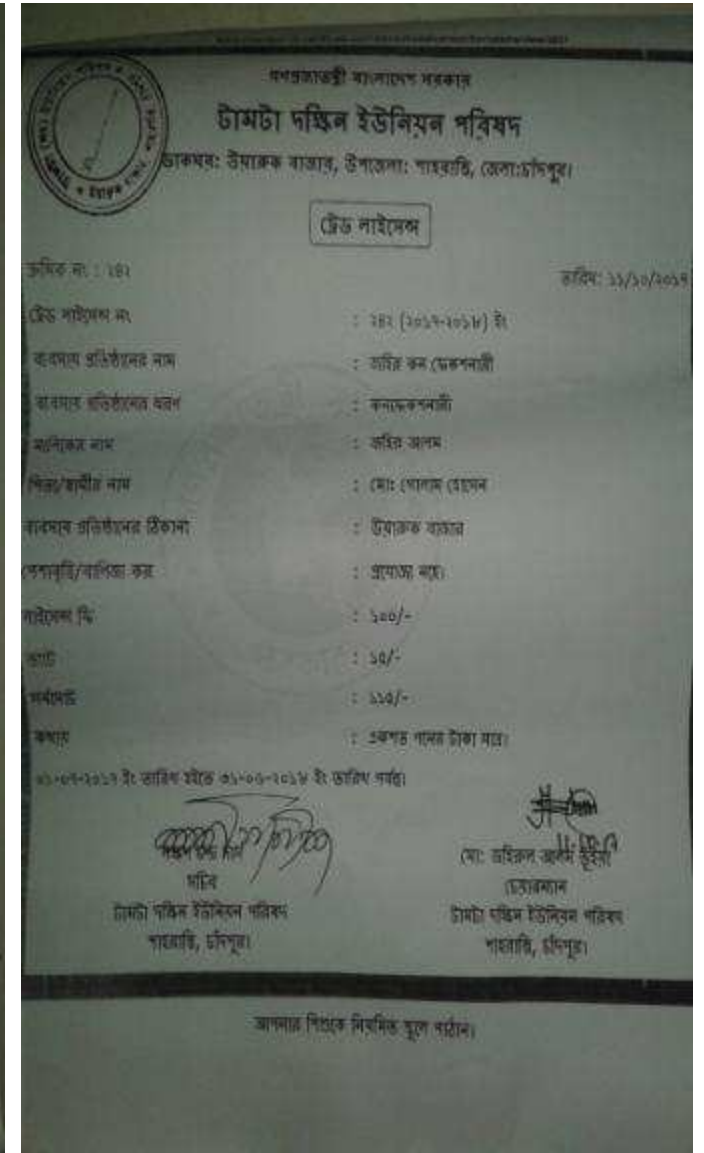 গণপ্রজাতন্ত্রী বাংলাদেশ সরকার
টামটা দক্ষিন ইউনিয়ন পরিষদ
ডাকঘর: উয়ারুক বাজার, উপজেলা: শাহরাস্তি, জেলা:চাঁদপুর।
ট্রেড লাইসেন্স
ক্রমিক নং : ২৪২
তারিখ: ১১/১০/২০১৭
ট্রেড লাইসেন্স নং : ২৪২ (২০১৭-২০১৮) ইং
ব্যবসায় প্রতিষ্ঠানের নাম : জহির কন ফেকশনারী
ব্যবসায় প্রতিষ্ঠানের ধরণ : কনফেকশনারী
মালিকের নাম : জহির আলম
পিতা/স্বামীর নাম : মোঃ গোলাম হোসেন
ব্যবসায় প্রতিষ্ঠানের ঠিকানা : উয়ারুক বাজার
পেশাবৃত্তি/বাণিজ্য কর : প্রযোজ্য নহে।
লাইসেন্স ফি : ১০০/-
ভ্যাট : ১৫/-
সর্বমোট : ১১৫/-
কথায় : একশত পনের টাকা মাত্র।
০১-০৭-২০১৭ ইং তারিখ হইতে ৩১-০৬-২০১৮ ইং তারিখ পর্যন্ত।
মো: জহিরুল আলম ভূইয়া
সচিব
চেয়ারম্যান
টামটা দক্ষিন ইউনিয়ন পরিষদ
টামটা দক্ষিন ইউনিয়ন পরিষদ
শাহরাস্তি, চাঁদপুর।
শাহরাস্তি, চাঁদপুর।
আপনার শিশুকে নিয়মিত স্কুলে পাঠান।